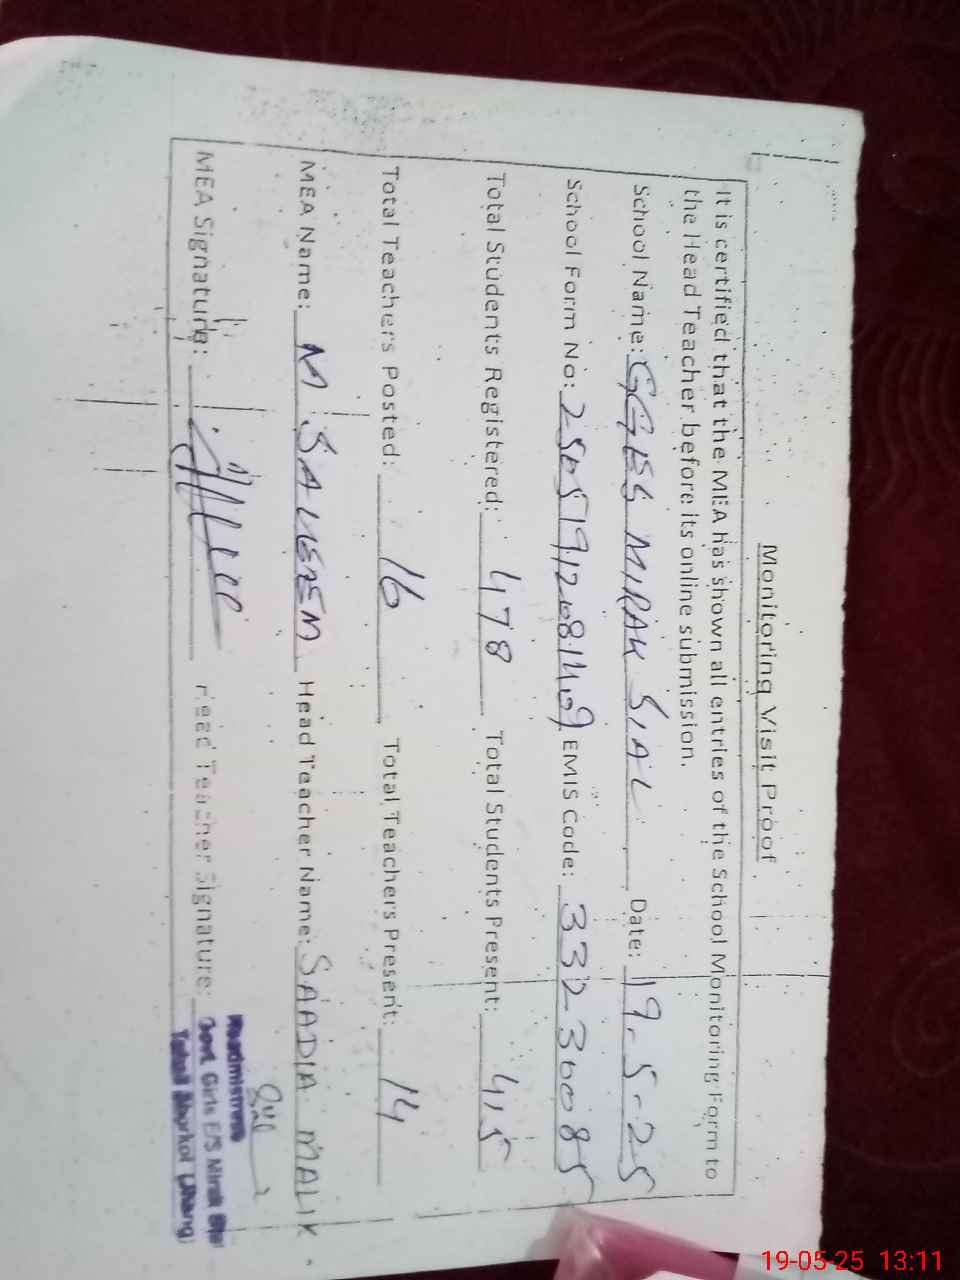 Monitoring Visit Proof
It is certified that the MEA has shown all entries of the School Monitoring Form to
the Head Teacher before its online submission.
School Name: GGES MIRAK SIAL Date: 19-5-25
School Form No: EMIS Code: 33230085
Total Students Registered: 478 Total Students Present: 415
Total Teachers Posted: 16 Total Teachers Present: 14
MEA Name: M SALEEM Head Teacher Name: SAADIA MALIK.
MEA Signature: Head Teacher Signature:
Headmistress
Govt. Girls E/S Mirak Sial
Tehsil Shorkot (Jhang)
19-05-25 13:11